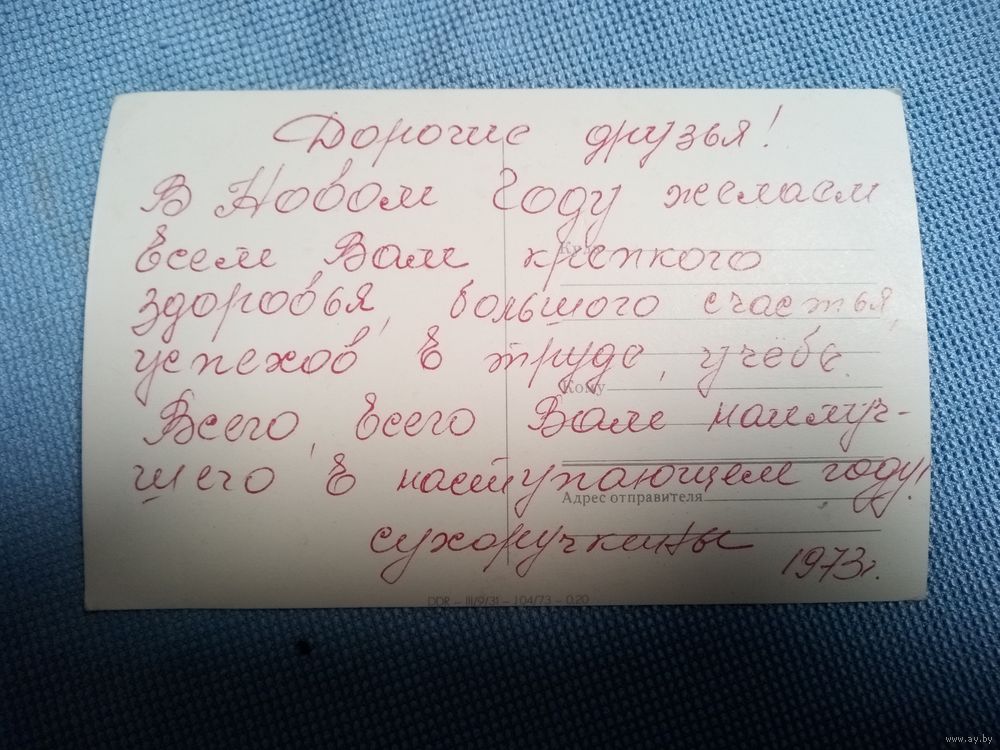 Дорогие друзья!
В Новом году желаем
всем Вам крепкого
здоровья, большого счастья,
успехов в труде, учёбе.
Всего, всего Вам наилуч-
шего в наступающем году!
Сухоручкины
1973г.
Куда
Кому
Адрес отправителя
DDR – III/9/31 – J 04/73 – 0,20
www.ay.by